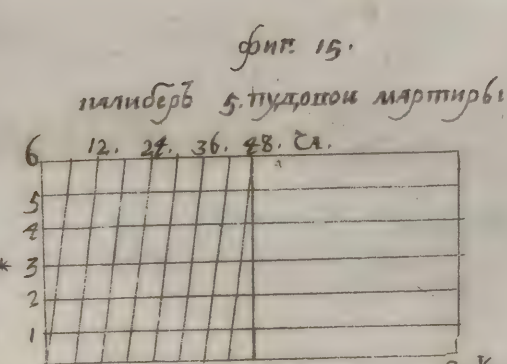 фиг. 15.
калиберъ 5. пудовои мартиры
6 12. 24. 36. 48. Ел.
5
4
* 3
2
1